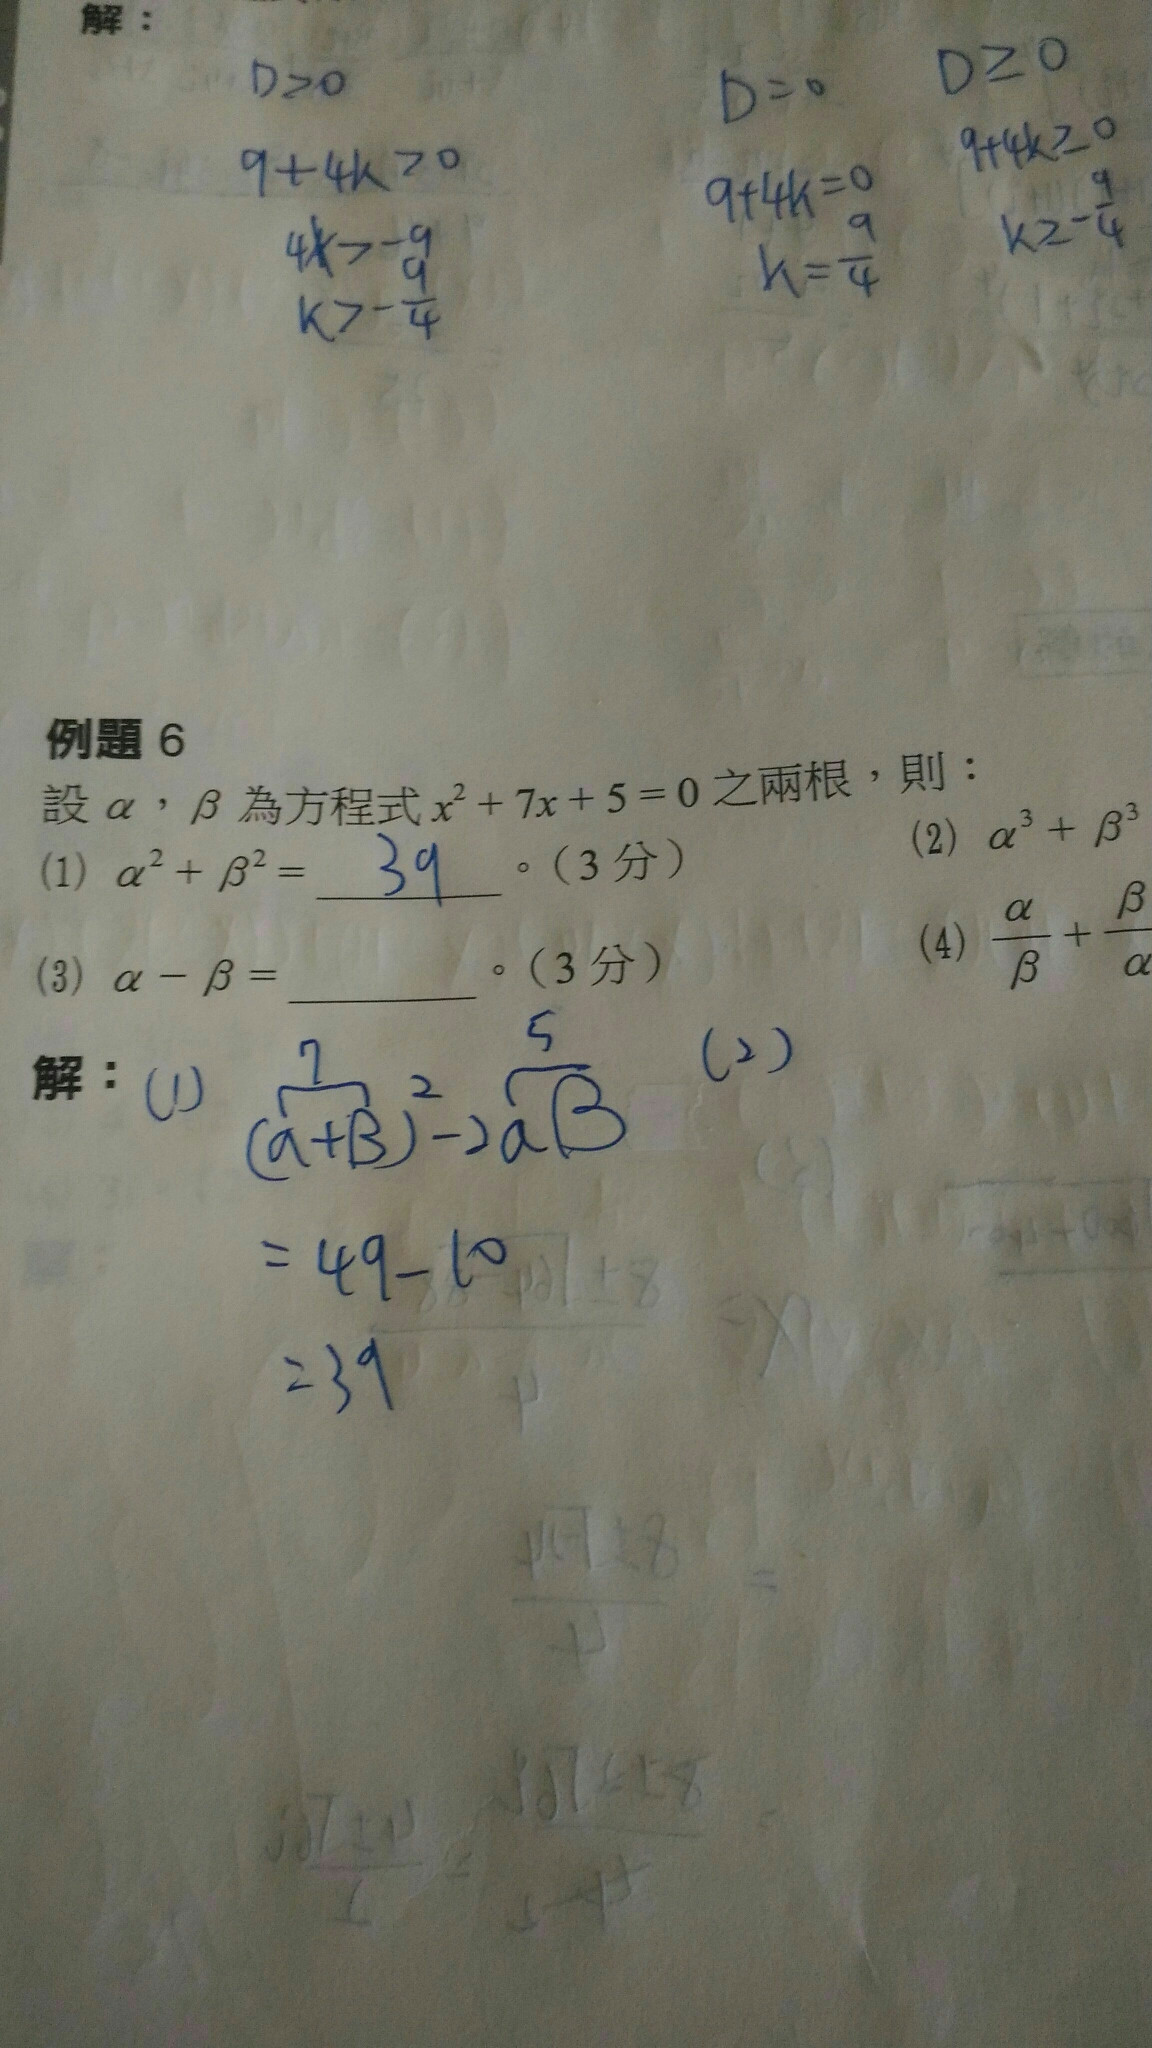 解：
D>0
9+4k>0
4k>-9
k>-9/4
D=0
9+4k=0
k=9/4
D≥0
9+4k≥0
k≥-9/4
例題 6
設 α，β 為方程式 x²+7x+5=0 之兩根，則：
(1) α²+β²= 39 。（3 分） (2) α³+β³
(3) α-β= 。（3 分） (4) α/β + β/α
解：(1) (a+β)²-2aβ (2)
7 5
=49-10
=39